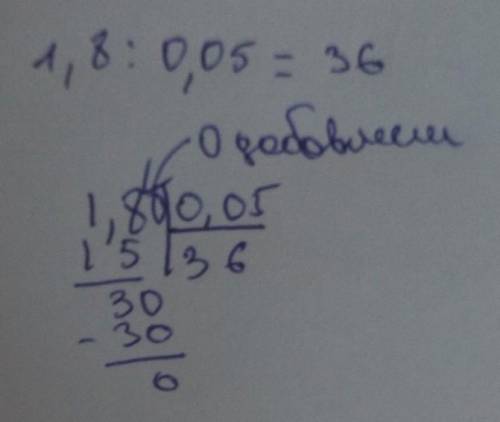 1,8 : 0,05 = 36
0 добавляем
1,80 0,05
15 36
30
- 30
0